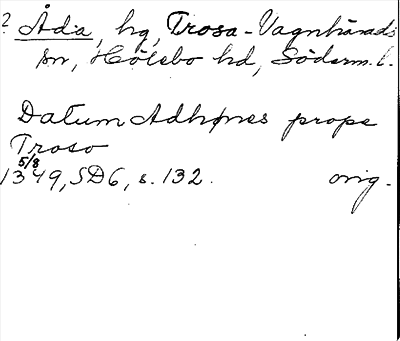 ? Åda, hg, Trosa-Vagnhärads
sn, Hölebo hd, Söderm.l.
Datum Adhønes prope
Troso
5/8
1349, SD6, s. 132. orig.